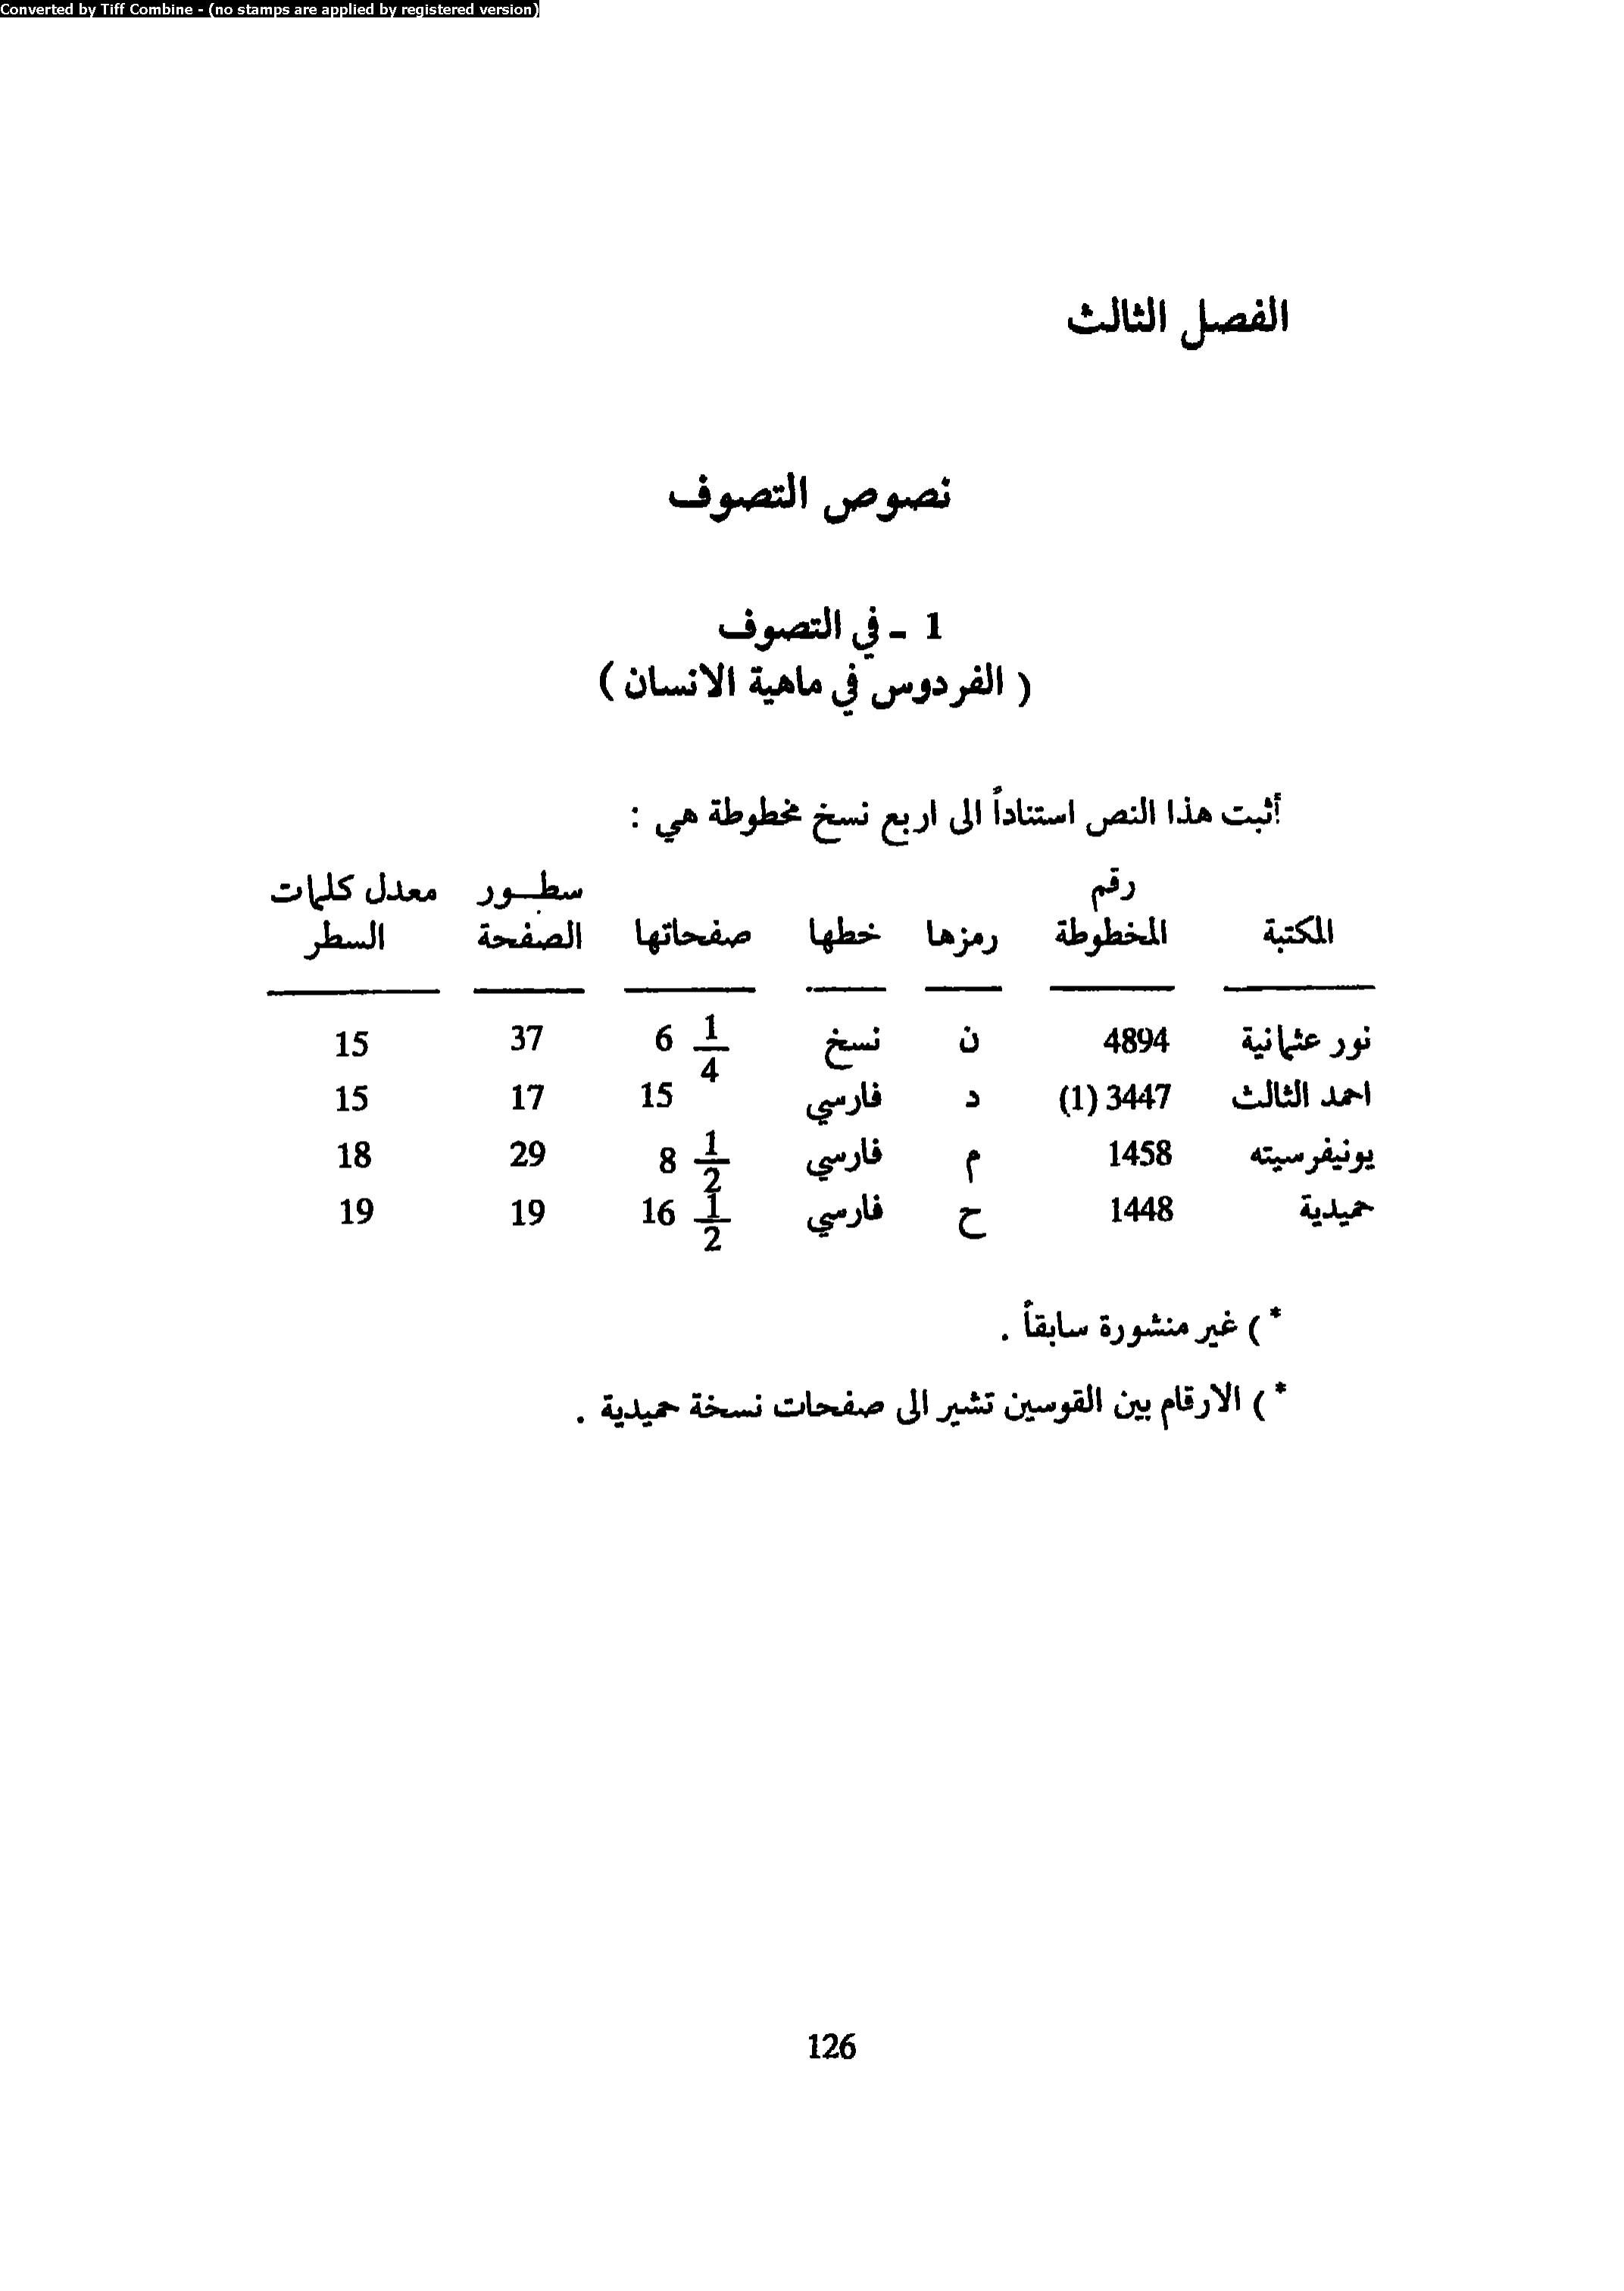 Converted by Tiff Combine - (no stamps are applied by registered version)
الفصل الثالث
نصوص التصوف
1 ـ في التصوف
( الفردوس في ماهية الانسان )
أثبت هذا النص استناداً الى اربع نسخ مخطوطة هي :
رقم سطــور معدل كلمات
المكتبة المخطوطة رمزها خطها صفحاتها الصفحة السطر
نور عثمانية 4894 ن نسخ 6 1/4 37 15
احمد الثالث 3447 (1) د فارسي 15 17 15
يونيفرسيته 1458 م فارسي 8 1/2 29 18
حميدية 1448 ح فارسي 16 1/2 19 19
* ) غير منشورة سابقاً .
* ) الارقام بين القوسين تشير الى صفحات نسخة حميدية .
126